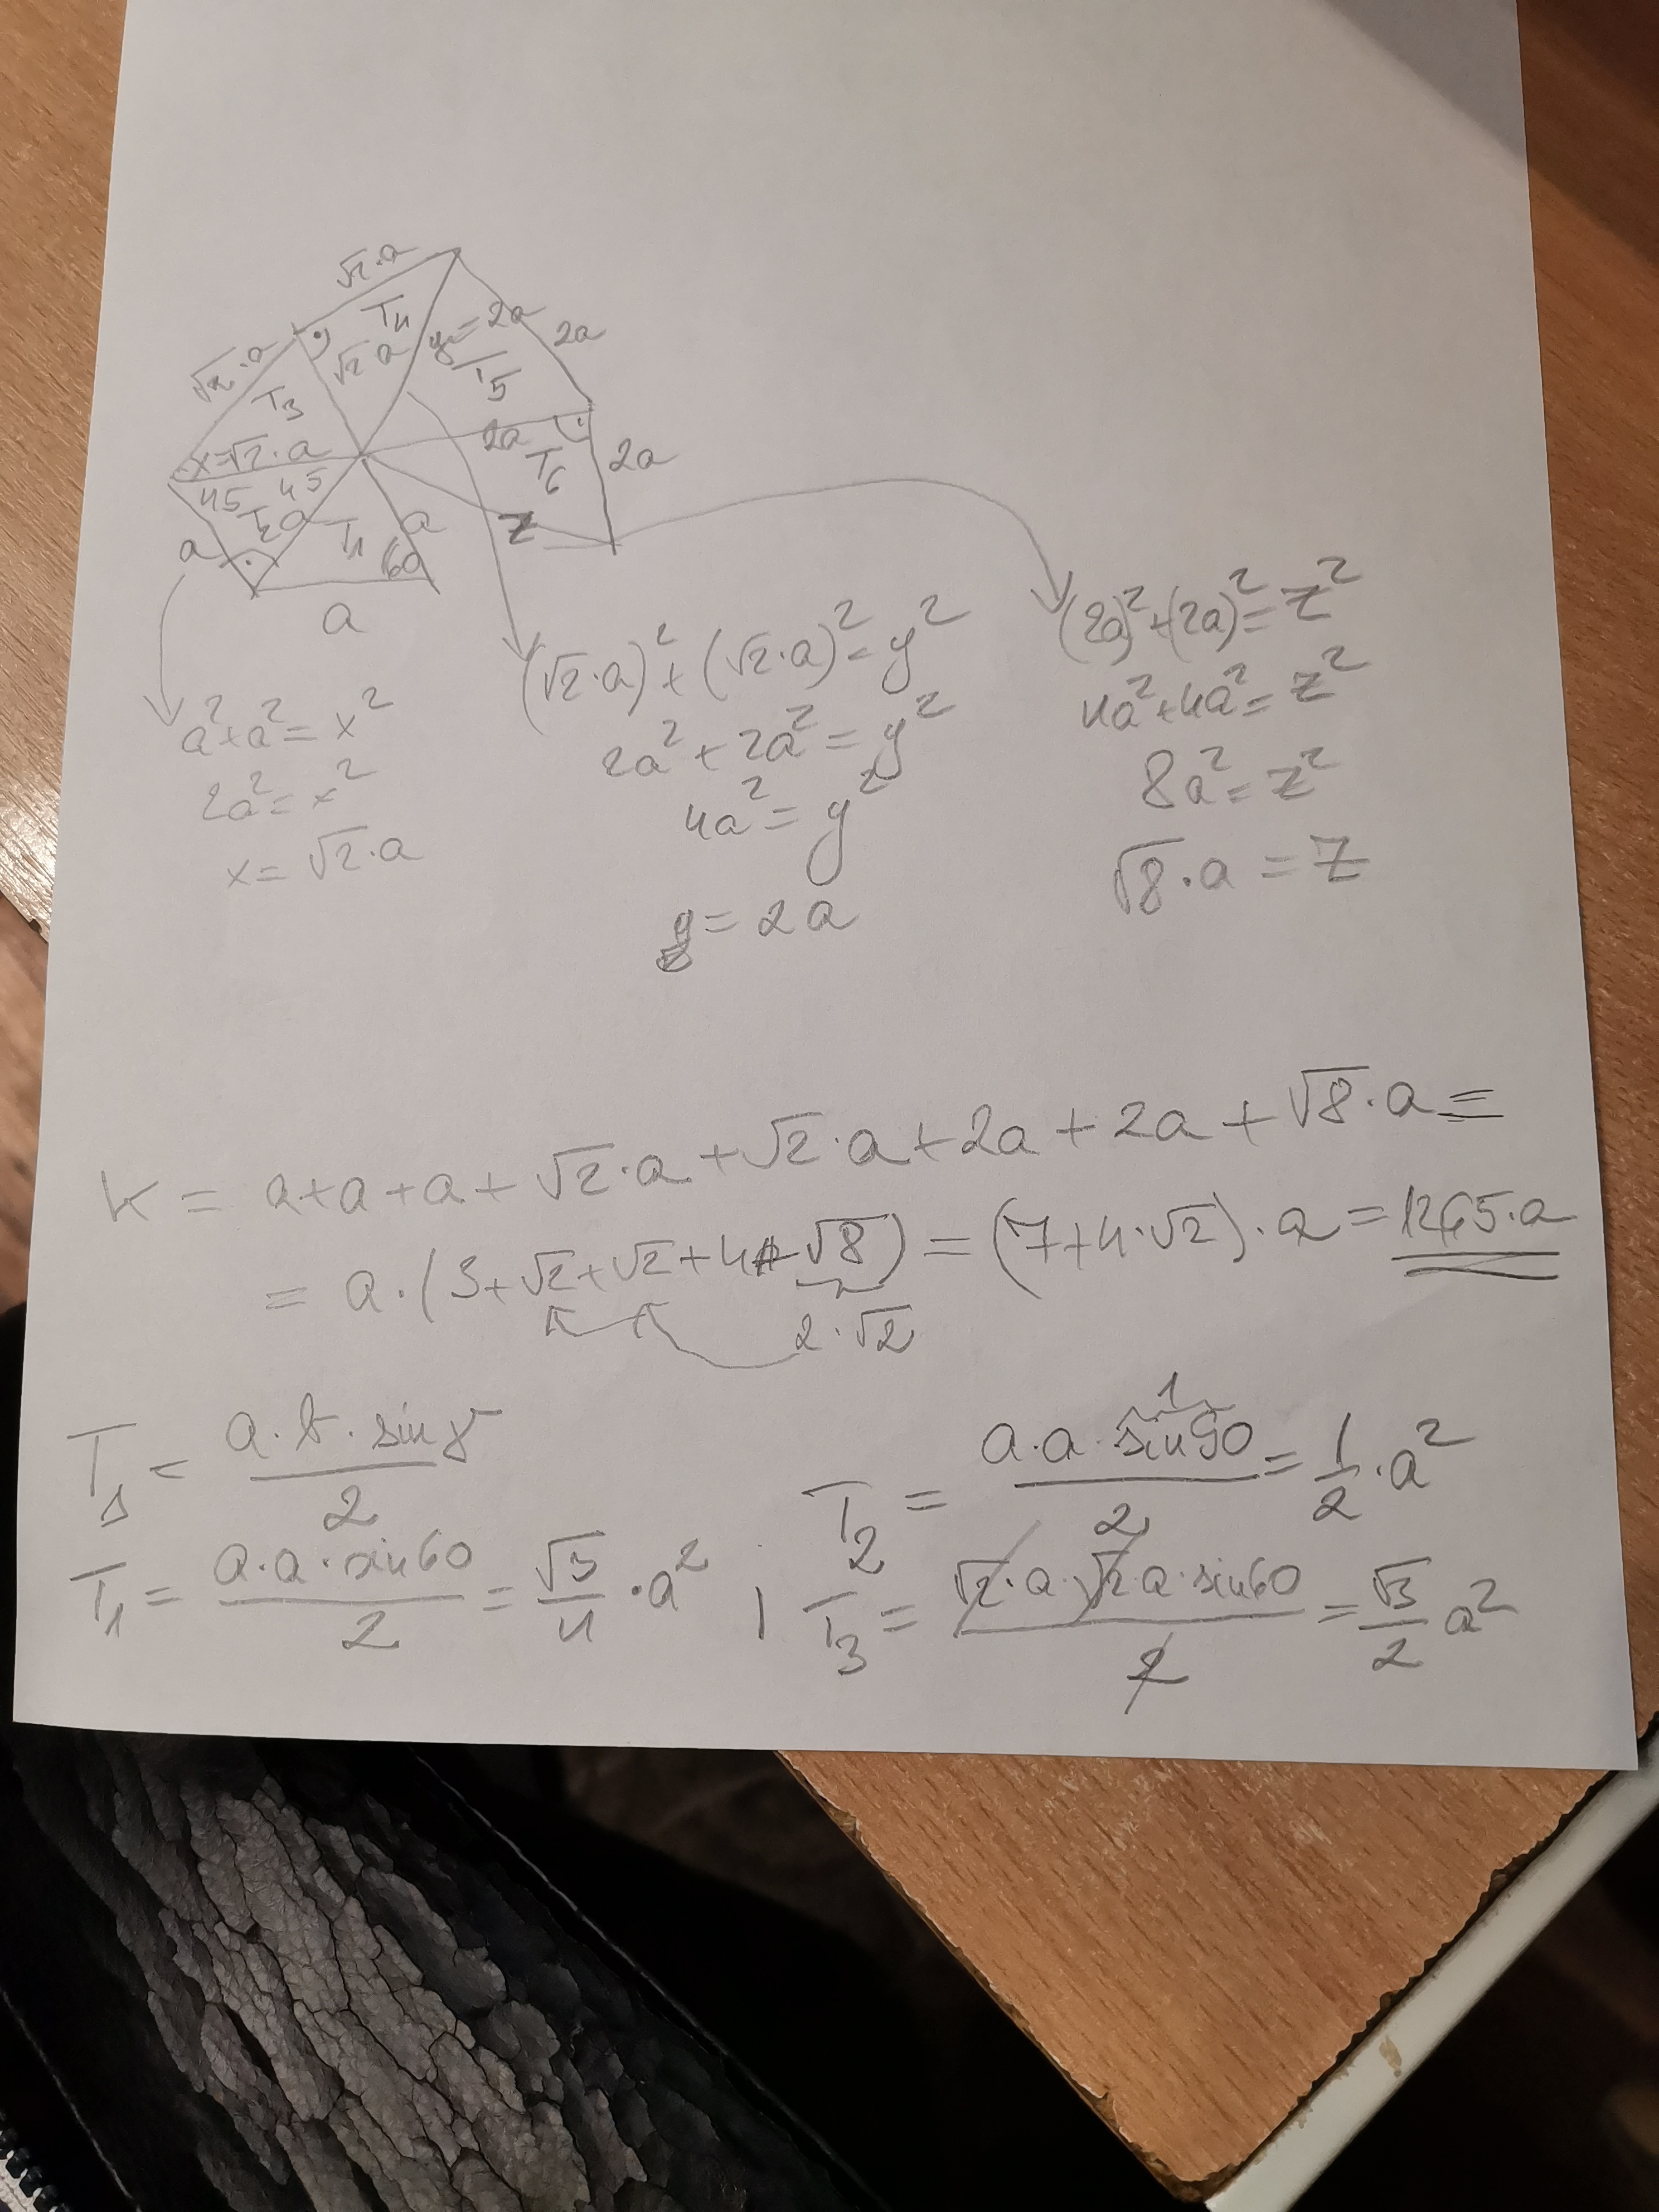 √2·a
√2·a
T4
√2·a
y=2a
2a
T5
T3
x=√2·a
2a
T6
2a
45
45
T2
a
T1
a
60
z
a
a
a²+a²=x²
2a²=x²
x=√2·a
(√2·a)²+(√2·a)²=y²
2a²+2a²=y²
4a²=y²
y=2a
(2a)²+(2a)²=z²
4a²+4a²=z²
8a²=z²
√8·a=z
K=a+a+a+√2·a+√2·a+2a+2a+√8·a=
=a·(3+√2+√2+4+√8)=(7+4·√2)·a=12,65·a
2·√2
T_Δ=a·b·sinγ/2
T1=a·a·sin60/2=√3/4·a²
T2=a·a·sin90/2=1/2·a²
1
; T3=√2·a·√2·a·sin60/2=√3/2 a²